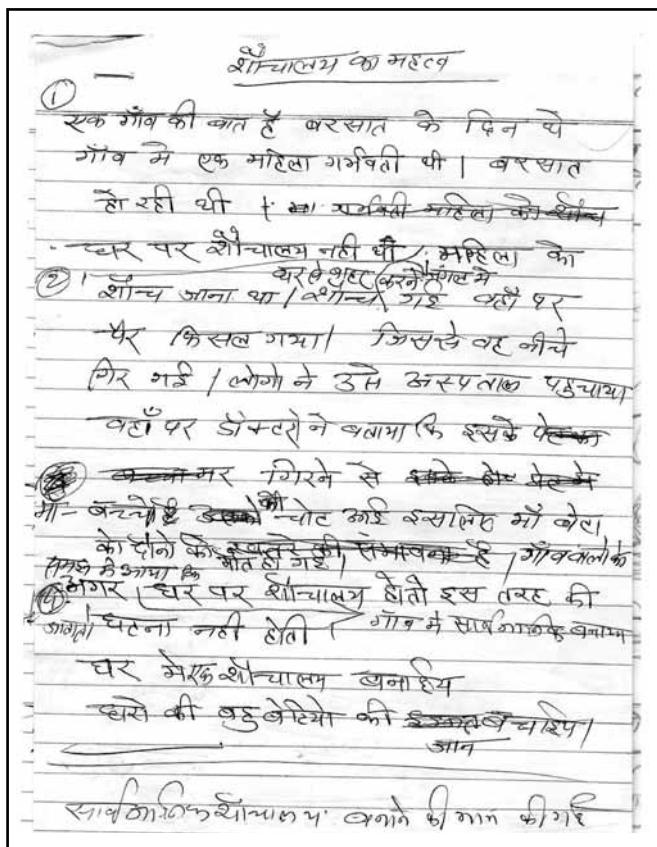 शौचालय का महत्व
①
एक गाँव की बात है बरसात के दिन थे
गाँव मे एक महिला गर्भवती थी | बरसात
हो रही थी | गर्भवती महिला को शौच
घर पर शौचालय नही थी / महिला को
② घर से बाहर करने जंगल मे
शौच जाना था | शौच गई वहाँ पर
पैर फिसल गया | जिससे वह नीचे
गिर गई | लोगो ने उसे अस्पताल पहुचाया
वहाँ पर डॉक्टरो ने बताया कि इसके पेट का
बच्चा मर गिरने से पेट मे
माँ - बच्चे को चोट आई इसलिए माँ बेटा
के दोनो की खतरे की संभावना है | गाँव वालो के
समझ मे आया कि मौत हो गई |
④ अगर घर पर शौचालय होतो इस तरह की
घटना नही होती | गाँव मे सार्वजनिक बनाया
घर मे एक शौचालय बनाईये
की बहु बेटियो की बचाईए |
जान
सार्वजनिक शौचालय बनाने की मांग की गई